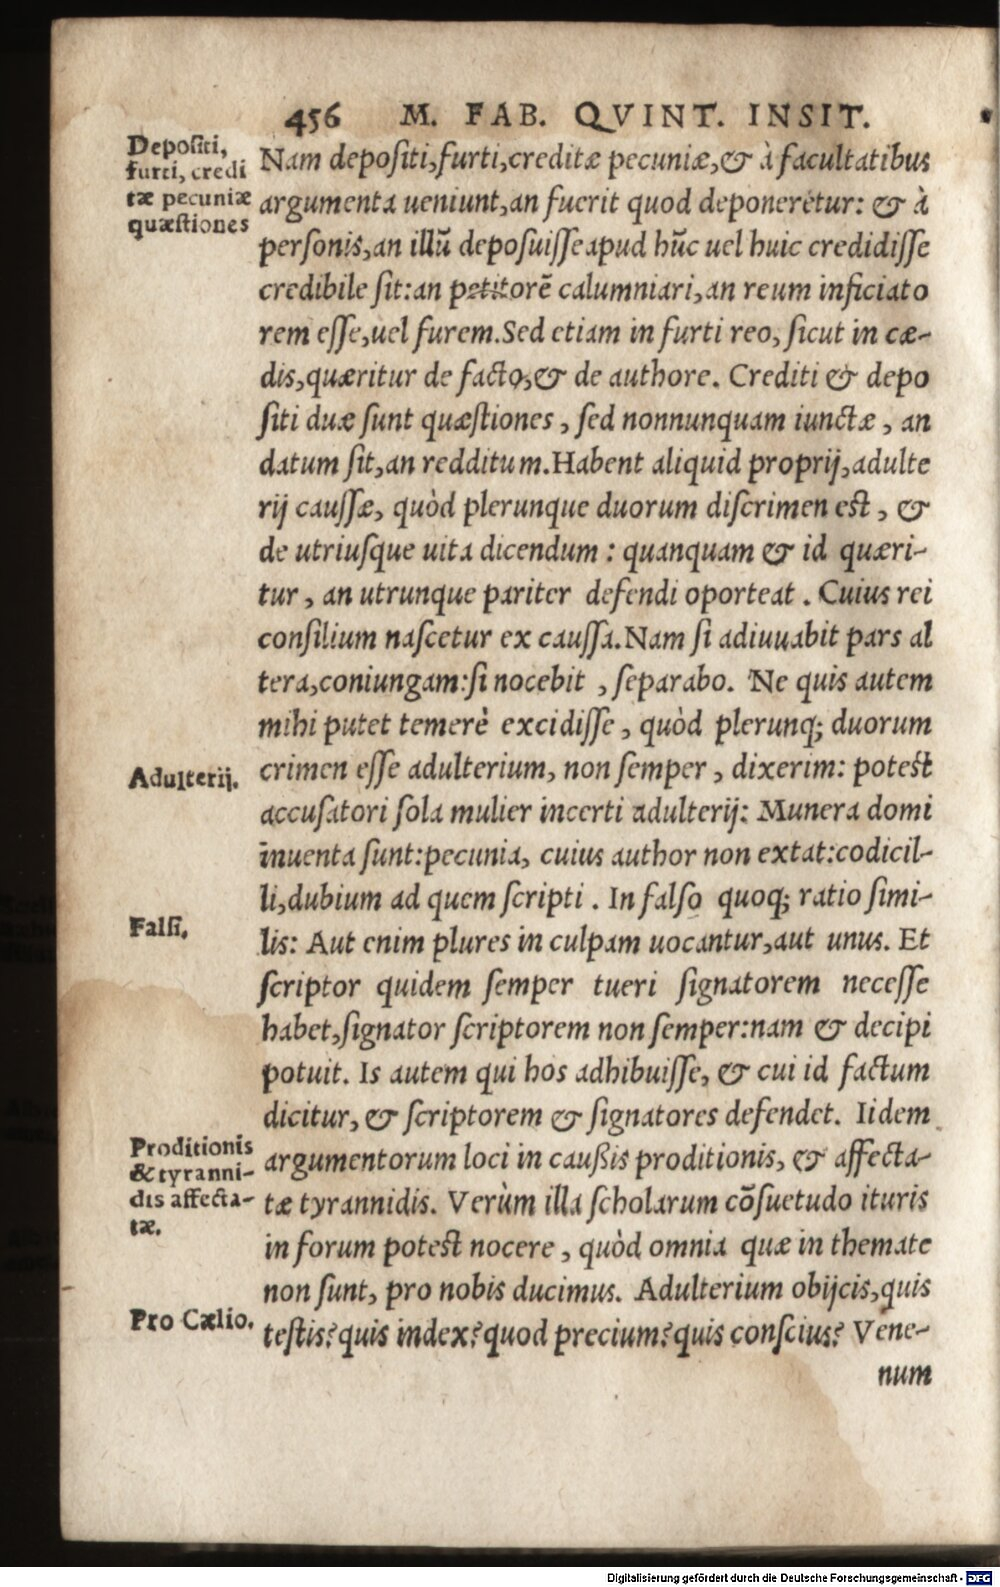 456 M. FAB. QVINT. INSIT.
Depositi,
furti, credi
tæ pecuniæ
quæstiones
Nam depositi, furti, creditæ pecuniæ, & à facultatibus
argumenta ueniunt, an fuerit quod deponeretur: & à
personis, an illũ deposuisse apud hũc uel huic credidisse
credibile sit: an petitorẽ calumniari, an reum inficiato
rem esse, uel furem. Sed etiam in furti reo, sicut in cæ-
dis, quæritur de facto, & de authore. Crediti & depo
siti duæ sunt quæstiones, sed nonnunquam iunctæ, an
datum sit, an redditum. Habent aliquid proprij, adulte
rij caussæ, quòd plerunque duorum discrimen est, &
de utriusque uita dicendum: quanquam & id quæri-
tur, an utrunque pariter defendi oporteat. Cuius rei
consilium nascetur ex caussa. Nam si adiuuabit pars al
tera, coniungam: si nocebit, separabo. Ne quis autem
mihi putet temerè excidisse, quòd plerunq; duorum
Adulterij.
crimen esse adulterium, non semper, dixerim: potest
accusatori sola mulier incerti adulterij: Munera domi
inuenta sunt: pecunia, cuius author non extat: codicil-
li, dubium ad quem scripti. In falso quoq; ratio simi-
Falsi,
lis: Aut enim plures in culpam uocantur, aut unus. Et
scriptor quidem semper tueri signatorem necesse
habet, signator scriptorem non semper: nam & decipi
potuit. Is autem qui hos adhibuisse, & cui id factum
dicitur, & scriptorem & signatores defendet. Iidem
Proditionis
& tyranni-
dis affecta-
tæ.
argumentorum loci in caußis proditionis, & affecta-
tæ tyrannidis. Verùm illa scholarum cõsuetudo ituris
in forum potest nocere, quòd omnia quæ in themate
non sunt, pro nobis ducimus. Adulterium obijcis, quis
Pro Cælio.
testis? quis index? quod precium? quis conscius? Vene-
num
Digitalisierung gefördert durch die Deutsche Forschungsgemeinschaft - DFG